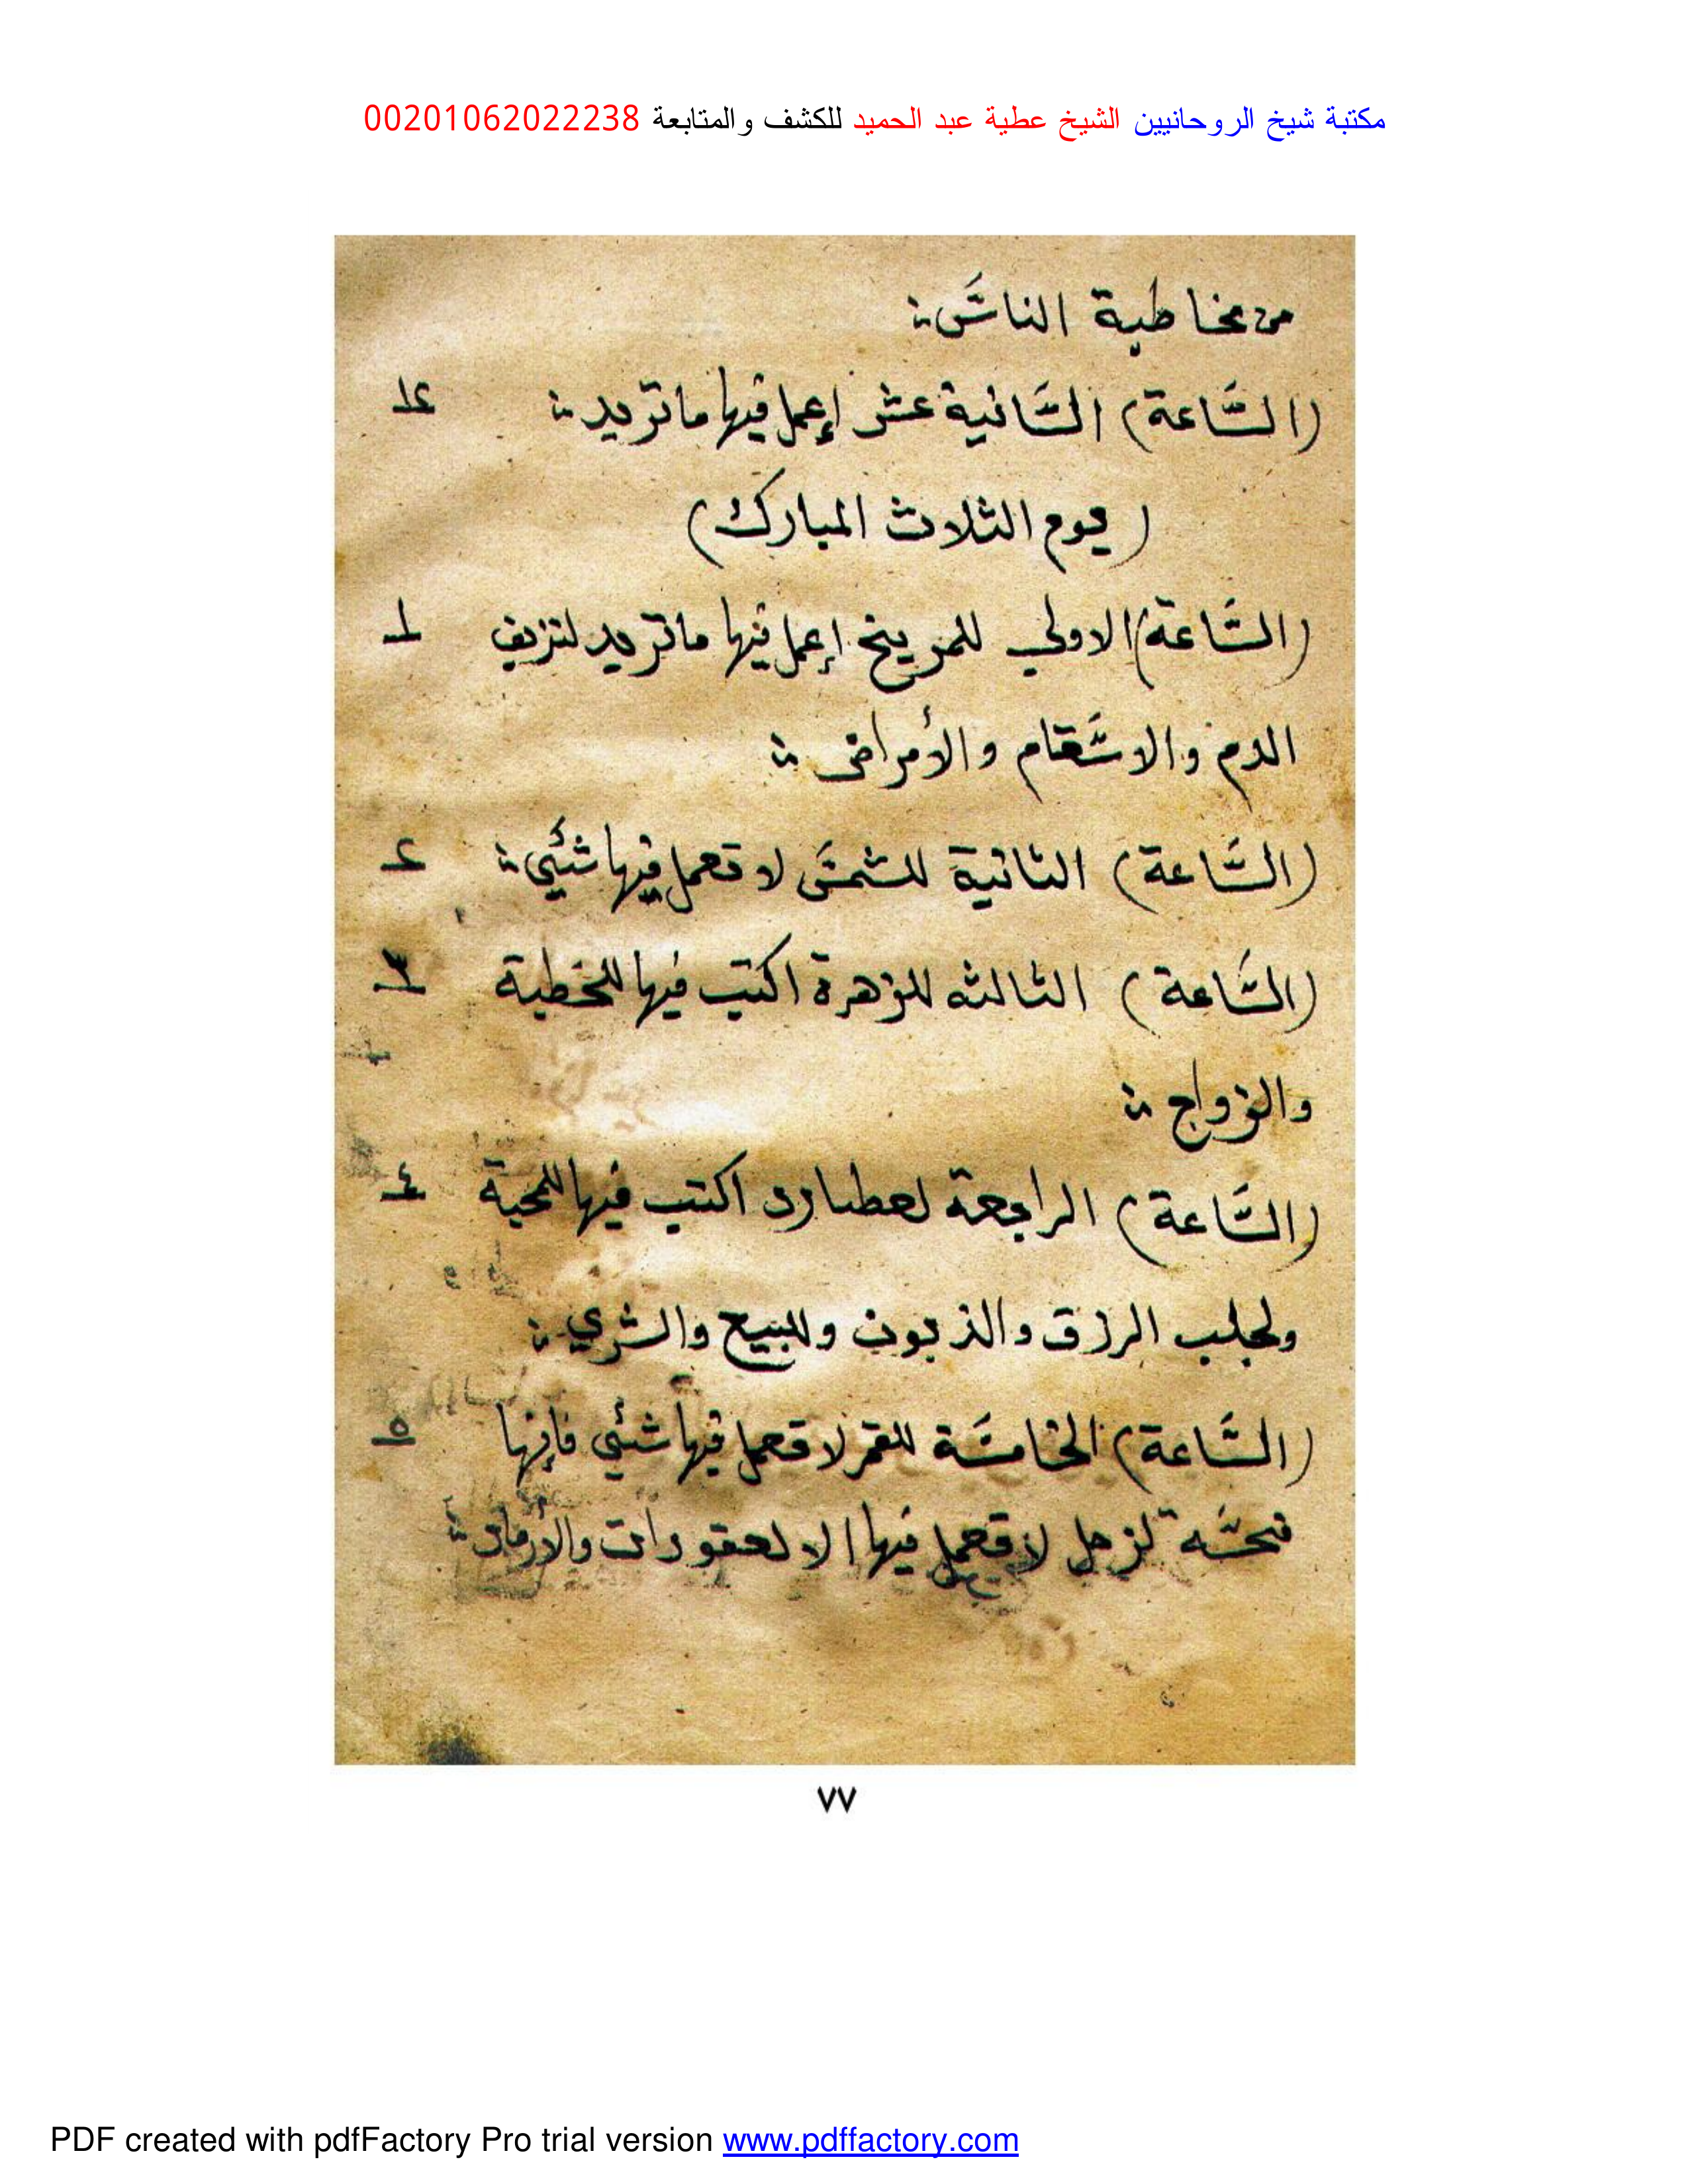 مكتبة شيخ الروحانيين الشيخ عطية عبد الحميد للكشف والمتابعة 00201062022238
من مخاطبة الناس
(الساعة) الثانية عشر إعمل فيها ما تريد ١٢
(يوم الثلاث المبارك)
(الساعة) الاولي للمريخ إعمل فيها ما تريد لنزيف ١
الدم والاسقام والأمراض
(الساعة) الثانية للشمس لا تعمل فيها شئي ٢
(الساعة) الثالثه للزهرة اكتب فيها للخطبة ٣
والزواج
(الساعة) الرابعة لعطارد اكتب فيها للمحبة ٤
ولجلب الرزق والزبون وللبيع والشري
(الساعة) الخامسة للقمر لا تعمل فيها شئي فإنها ٥
نحسه لزحل لا تعمل فيها الا لعقودات
٧٧
PDF created with pdfFactory Pro trial version www.pdffactory.com